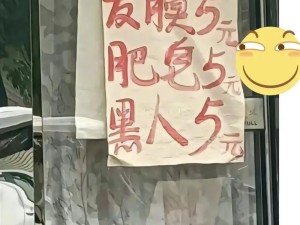 发膜5元
肥皂5元
黑人5元
PULL